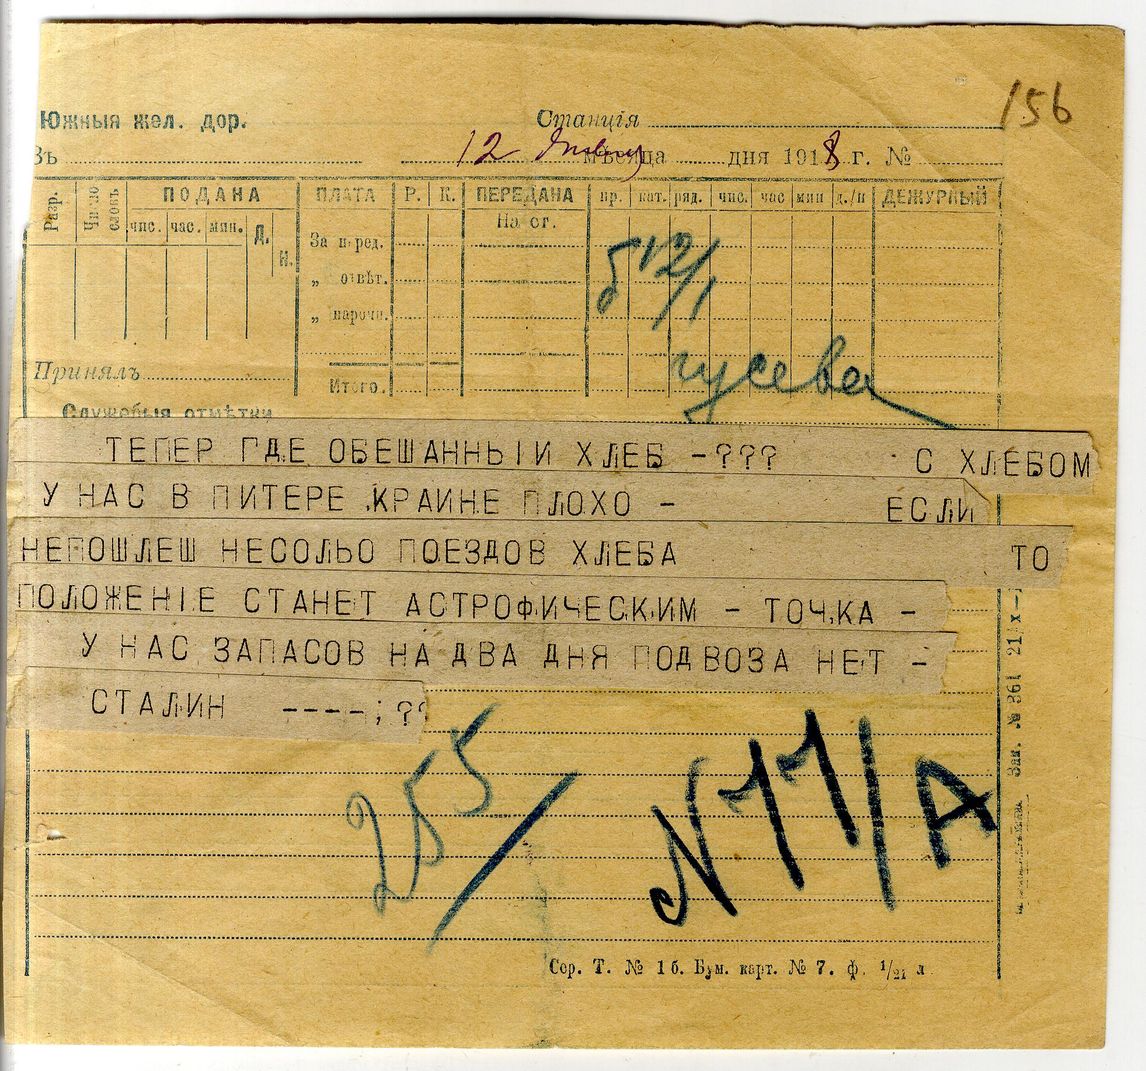 156
Южныя жел. дор. Станція
Въ 12 мѣсяца дня 1918 г. №
Разр. Число словъ ПОДАНА ПЛАТА Р. К. ПЕРЕДАНА пр. кат. ряд. чис. час мин д./н ДЕЖУРНЫЙ
чис. час. мин. Д. Н. На ст.
За перед.
„ отвѣт.
„ нарочн.
б 12/1
гусева
Принялъ Итого.
Служебныя отмѣтки
ТЕПЕР ГДЕ ОБЕШАННЫІИ ХЛЕБ -??? С ХЛЕБОМ
У НАС В ПИТЕРЕ КРАИНЕ ПЛОХО - ЕСЛИ
НЕПОШЛЕШ НЕСОЛЬО ПОЕЗДОВ ХЛЕБА ТО
ПОЛОЖЕНІЕ СТАНЕТ АСТРОФИЧЕСКИМ - ТОЧКА -
У НАС ЗАПАСОВ НА ДВА ДНЯ ПОДВОЗА НЕТ -
СТАЛИН ----;??
255/
N 77/А
Зак. № 361 21
Сер. Т. № 1б. Бум. карт. № 7. ф. 1/21 л